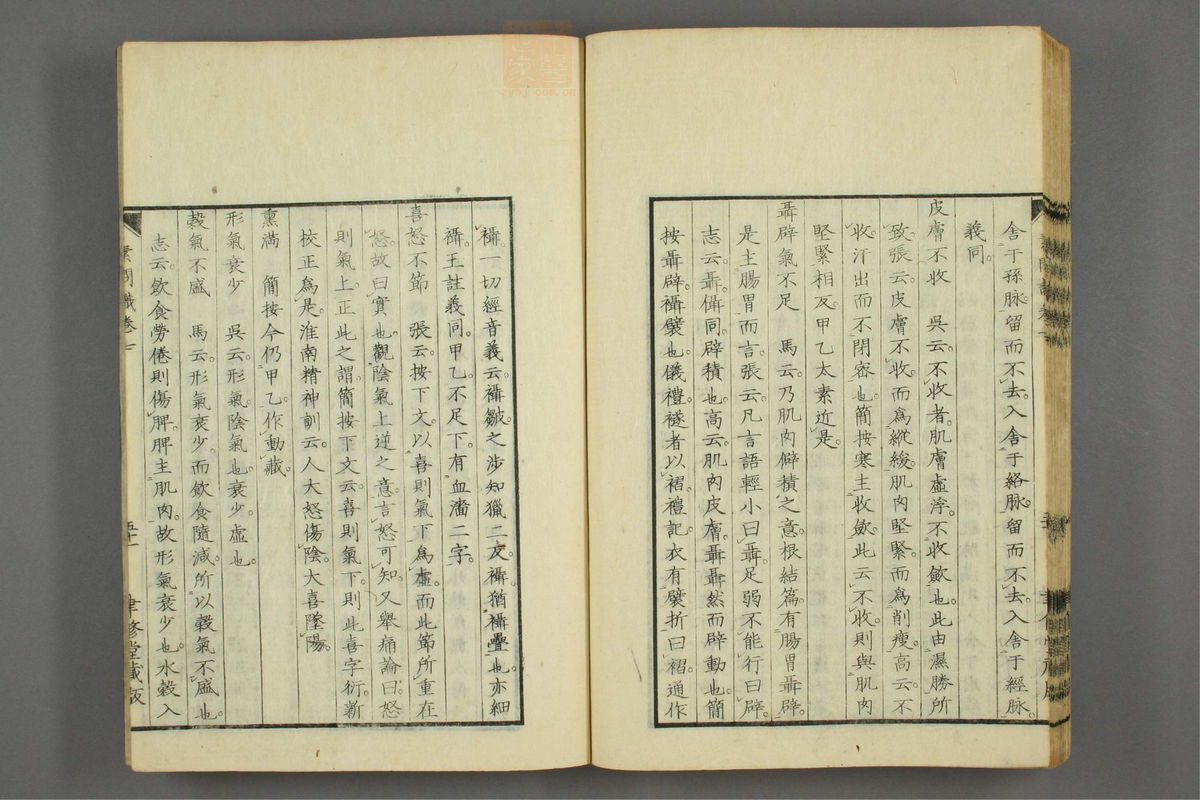 舍于孫脉。留而不去。入舍于絡脉。留而不去。入舍于經脉。
義同。
皮膚不收　吳云。不收者。肌膚虛浮。不收斂也。此由濕勝所
致。張云。皮膚不收。而爲縱緩。肌肉堅緊。而爲削瘦。高云。不
收。汗出而不閉密也。簡按寒主收斂。此云不收。則與肌肉
堅緊相反。甲乙太素近是。
聶辟氣不足　馬云。乃肌肉僻積之意。根結篇。有腸胃聶辟。
是主腸胃而言。張云。凡言語輕小曰聶。足弱不能行曰辟。
志云。聶。儡同。辟積也。高云。肌肉皮膚。聶聶然而辟動也。簡
按聶辟。襵襞也。儀禮。襚者以褶。禮記。衣有襞折曰褶。通作
襵。一切經音義云。襵皺。之涉知獵二反。襵猶襵疊也。亦細
襵。王註義同。甲乙。不足下。有血濇二字。
喜怒不節　張云。按下文。以喜則氣下爲虛。而此節所重在
怒。故曰實也。觀陰氣上逆之意。言怒可知。又舉痛論曰。怒
則氣上。正此之謂。簡按下文云。喜則氣下。則此喜字衍。新
校正爲是。淮南精神訓云。人大怒傷陰。大喜墜陽。
熏滿　簡按今仍甲乙。作動藏。
形氣衰少　吳云。形氣。陰氣也。衰少。虛也。
穀氣不盛　馬云。形氣衰少。而飲食隨減。所以穀氣不盛也。
志云。飲食勞倦則傷脾。脾主肌肉。故形氣衰少也。水穀入
素問識卷七
聿修堂藏版